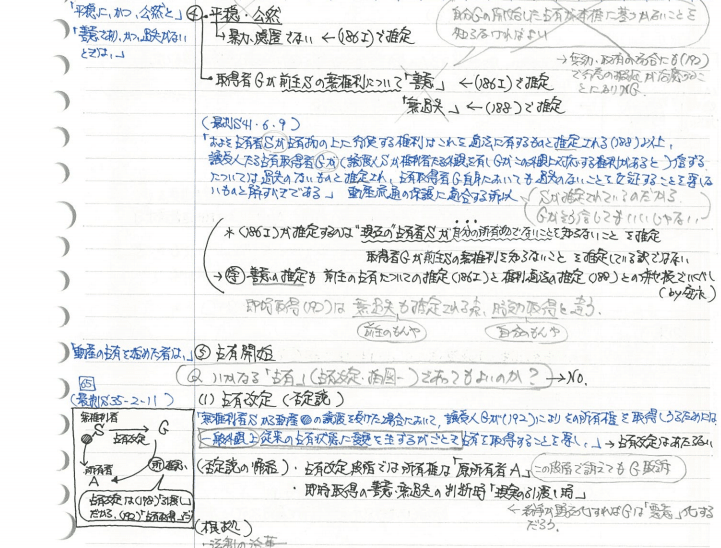 「平穏に、かつ、公然と」 ④ 平穏・公然
→ 暴力、隠匿でない ←(186Ⅰ)で推定
「善意であり、かつ、過失がないときは、」
取得者Gが前主Sの無権利について「善意」 ←(186Ⅰ)で推定
「無過失」 ←(188)で推定
(最判S41・6・9)
「およそ占有者Sが占有物の上に行使する権利はこれを適法に有するものと推定される(188)以上、
譲受人たる占有取得者Gが(譲渡人Sが権利者たる外観を有し、Gがこの外観に対応する権利があると)信ずる
については過失のないものと推定され、占有取得者G自身においても過失のないことを立証することを要しな
いものと解すべきである」 動産流通の保護に適合する所以
Sが推定されているのだから、
Gが信じてもいいじゃない
*(186Ⅰ)が推定するのは"現在の"占有者Sが自分の所有物でないことを知らないこと を推定
取得者Gが前主Sの無権利を知らないこと を推定している訳ではない
→ 善意の推定も 前主の占有についての推定(186Ⅰ)と権利適法の推定(188)との
即時取得(192)は 無過失も推定される点、時効取得と違う。
前主のもんや 自分のもんや
「動産の占有を始めた者は、」 ⑤ 占有開始
Q いかなる「占有」(占有改定・指図…)であってもよいのか? →No.
65
(最判S35・2・11) (1) 占有改定 (否定説)
「無権利者Sから動産の譲渡を受けた場合において、譲受人Gが(192)によりその所有権を取得しうるためには、
一般外観上従来の占有状態に変更を生ずるがごとき占有を取得することを要し、」→占有改定はあたらない
無権利者
S → G
占有改定
所有者
A
占有改定は(178)「引渡し」
だから、(192)「占有取得」
(否定説の帰結)・占有改定段階では所有権は「原所有者A」 この段階で訴えてもG敗訴
・即時取得の善意・無過失の判断時「現実の引渡し時」
←紛争が顕在化すればGは「悪意」化する
だろう。
(根拠)